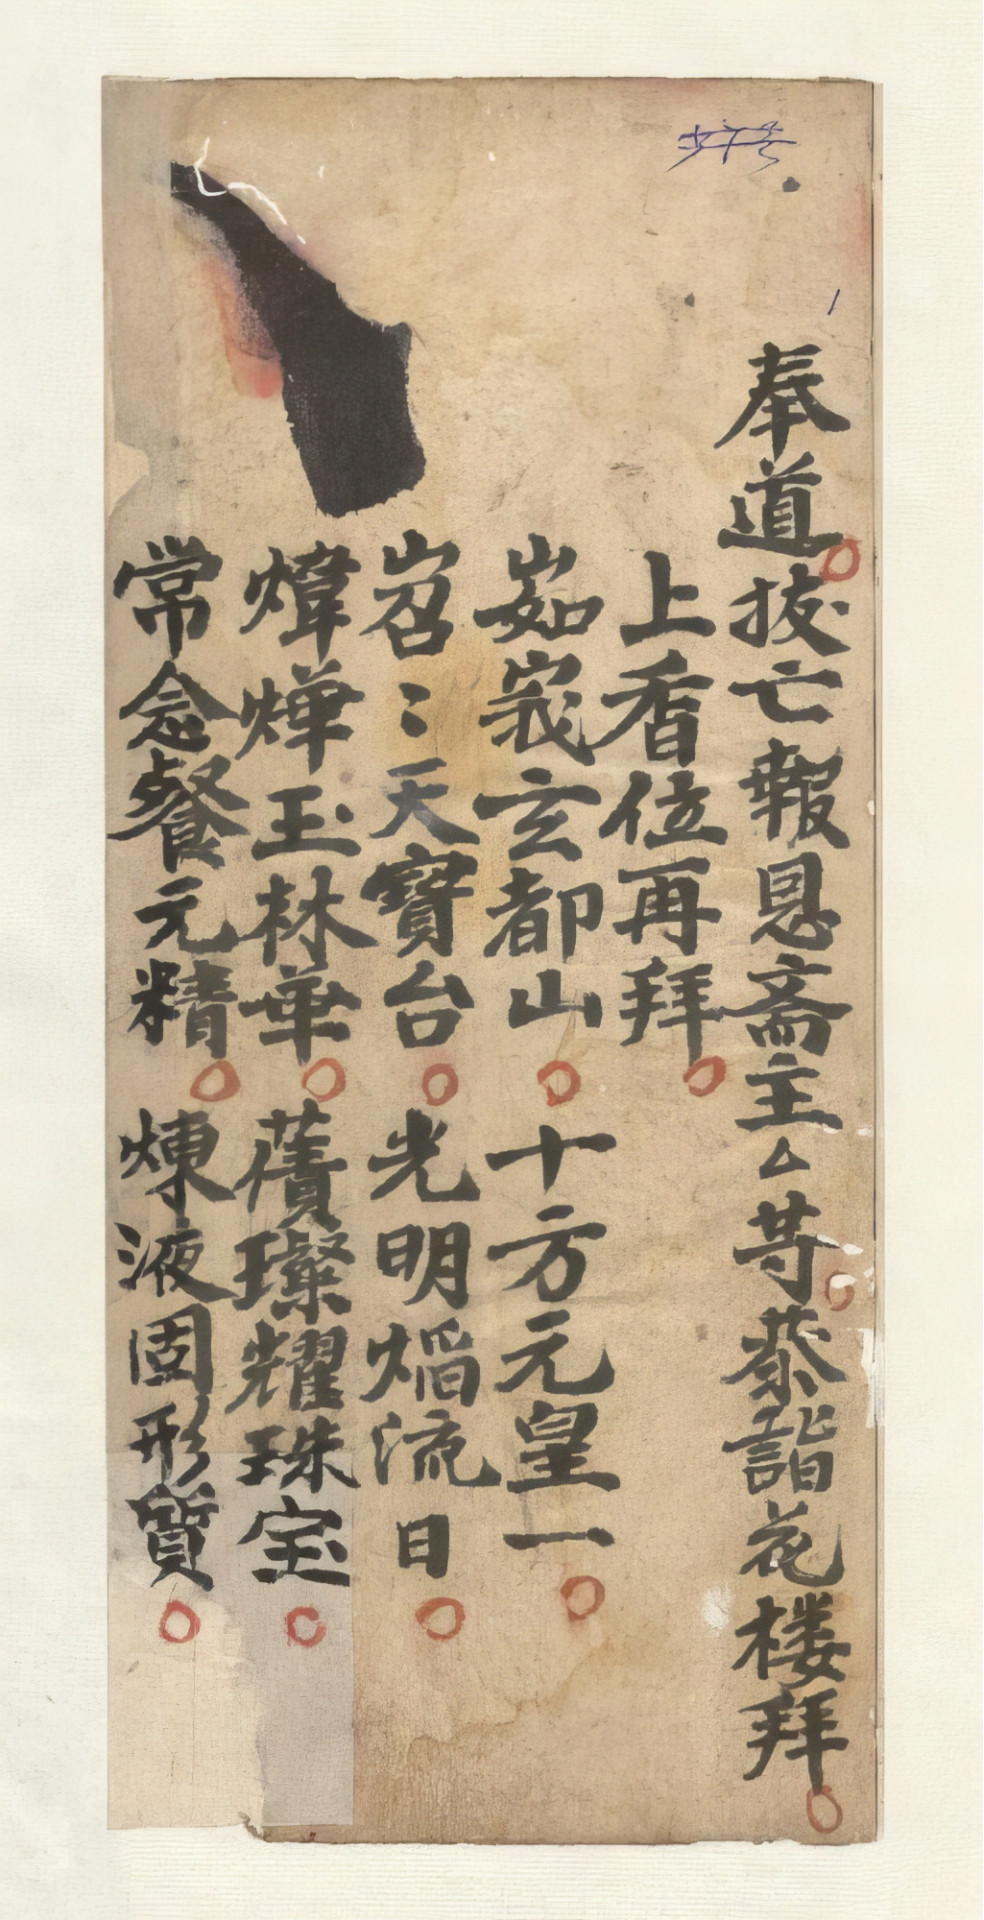 奉道拔亡報恩斋主厶等恭詣花楼拜
上香位再拜
峩玄都山十方元皇一
岧〻天寶台光明焰流日
煒燁玉林華蒨璨耀珠宝
常念餐元精煉液固形質